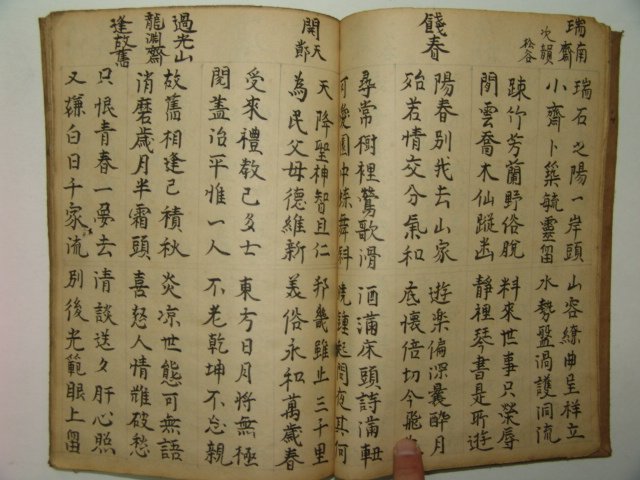 瑞南齋
次韻
松谷
瑞石之陽一岸頭 山容繚曲呈祥立
小齋卜築毓靈留 水勢盤渦護洞流
疎竹芳蘭野俗脫 料來世事只榮辱
閒雲喬木仙蹤幽 靜裡琴書是所遊
餞春
陽春別我去山家 遊楽偏深囊醉月
殆若情交分氣和 底懷倍切今飛
尋常樹裡鶯歌滑 酒滿床頭詩滿軸
園中蝶舞斜 起問夜其何
開天節
天降聖神智且仁 邦畿雖止三千里
為民父母德維新 義俗永和萬歲春
受來禮教已多士 東方日月將無極
閲蓋治平惟一人 不老乾坤不忘親
過光山
龍淵齋
逢故舊
故舊相逢已積秋 炎凉世態可無語
消磨歲月半霜頭 喜怒人情難破愁
只恨青春一夢去 清談送夕肝心照
又嫌白日千家流 別後光範眼上留